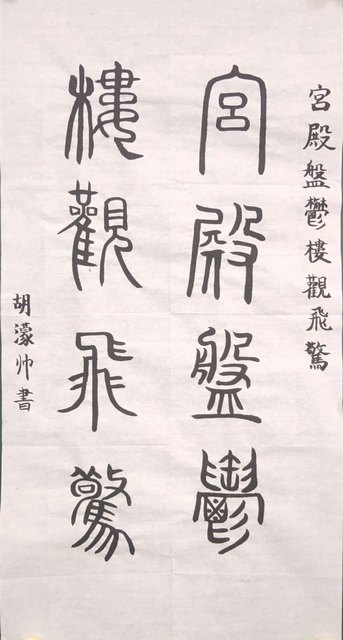 宮殿盤鬱樓觀飛驚
宮殿盤鬱
樓觀飛驚
胡濛帅書